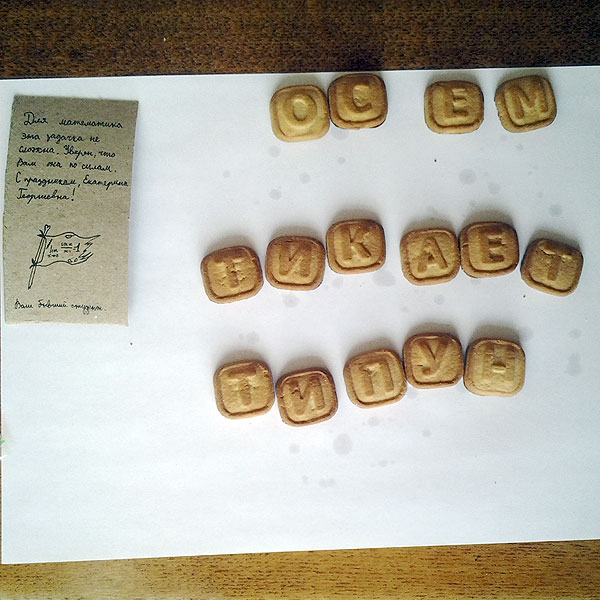 Для математика
эта задачка не
сложна. Уверен, что
Вам она по силам.
С праздником, Екатерина
Георгиевна!
lim sin x / x = 1
x→0
Ваш бывший студент.
ОС ЕМ
ТИКАЕТ
ТИПУН